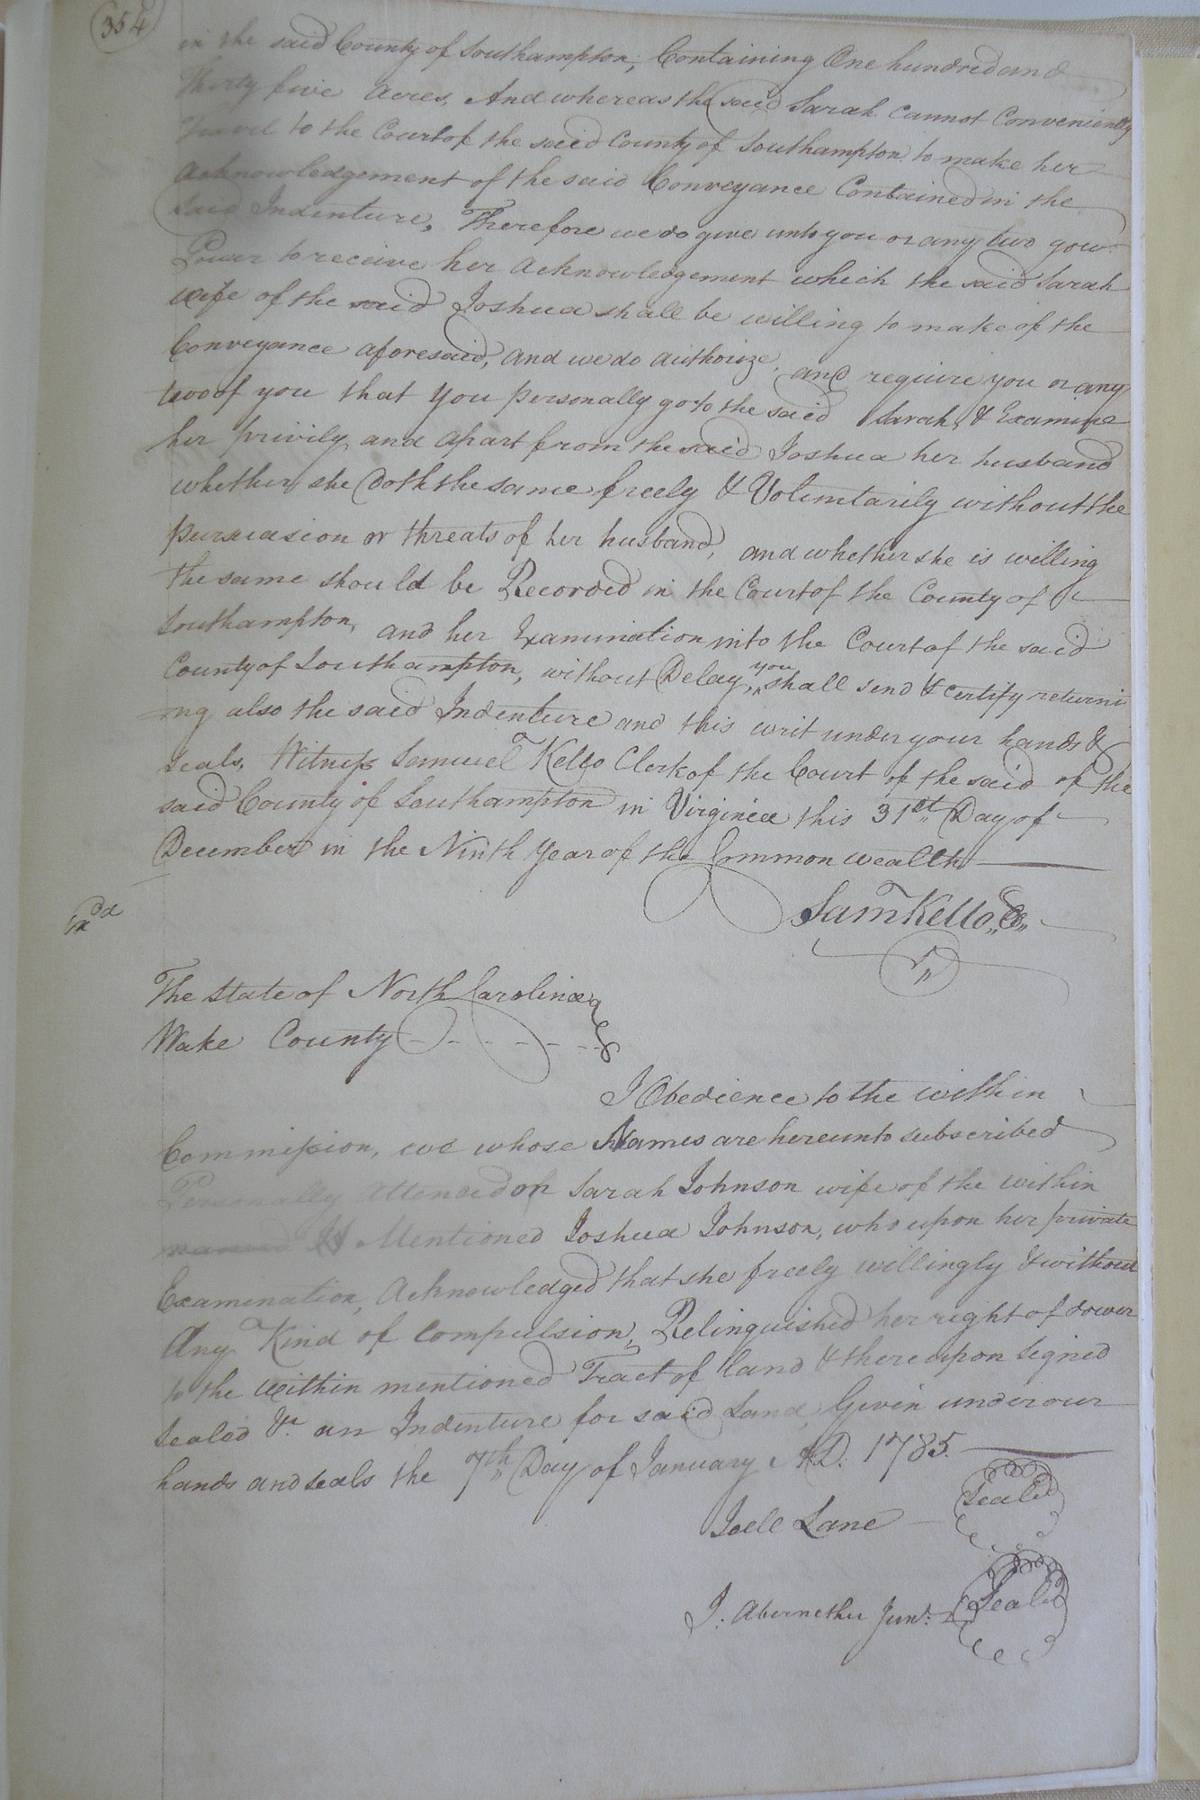 354
in the said County of Southampton, Containing One hundred and
thirty five Acres, And whereas the said Sarah Cannot Conveniently
Travel to the Court of the said County of Southampton to make her
Acknowledgement of the said Conveyance Contained in the
said Indenture, Therefore we do give unto you or any two you
Power to receive her Acknowledgement which the said Sarah
wife of the said Joshua shall be willing to make of the
Conveyance aforesaid, and we do authorize, and require you or any
two of you that you personally go to the said Sarah, & Examine
her privily and apart from the said Joshua her husband
whether she doth the same freely & Voluntarily without the
persuasion or threats of her husband, and whether she is willing
the same should be Recorded in the Court of the County of
Southampton, and her Examination into the Court of the said
County of Southampton, without Delay, you shall send & certify returni
ng also the said Indenture and this writ under your hands &
seals, Witness Samuel Kello Clerk of the Court of the said of the
said County of Southampton in Virginia this 31st Day of
December in the Ninth Year of the Common wealth
Sam Kello,, C,,
The State of North Carolina
Wake County
I Obedience to the within
Commission, we whose Names are hereunto subscribed
Personally Attended on Sarah Johnson wife of the within
Mentioned Joshua Johnson, who upon her private
Examination, Acknowledged that she freely willingly & without
Any Kind of Compulsion, Relinquished her right of dower
to the within mentioned Tract of land & thereupon Signed
Sealed &c an Indenture for said Land, Given under our
hands and seals the 7th Day of January A.D. 1785.
Joell Lane
Seal'd
J. Abernethu Junr.
Seal'd